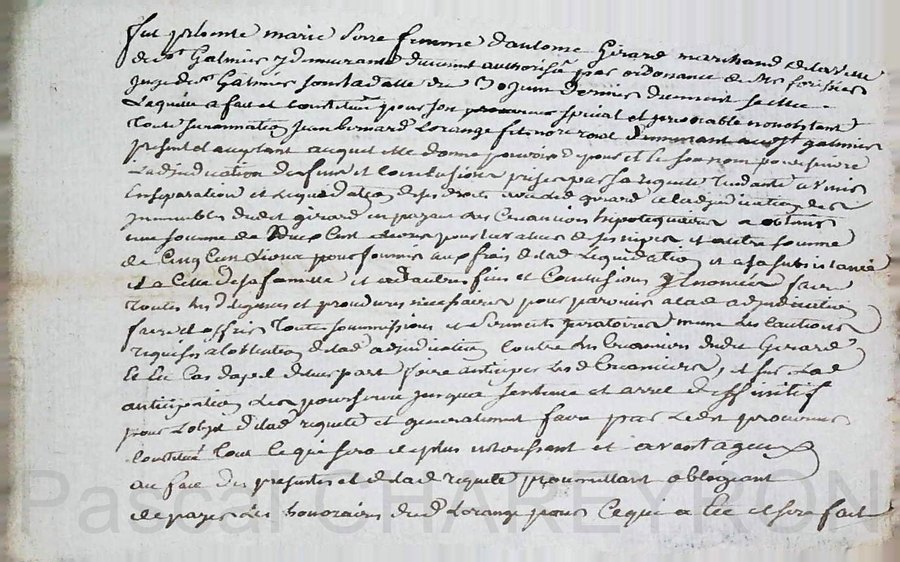 fut présente marie Serre femme d'antoine Girard marchand de la ville
de st Galmier y demeurante duement authorisée par ordonnance de Mr
juge de st Galmier sous la datte du 30 juin dernier duement scellée
Laquelle a fait et constitué pour son procureur special et irrevocable nonobstant
toute surannation jean bernard Lorange fils notaire royal demeurant audit st galmier
présent et acceptant auquel elle donne pouvoir de pour et en son nom poursuivre
L'adjudication des fins et conclusions prises par sa requete tendante a venir
en separation et liquidation de ses droits avec led girard et adjudication des
immeubles dudit girard en payant les creanciers hipotequaires a obtenir
une somme de cent livres pour la value de ses nipes et autre somme
de Cinq Cent Livres pour fournir aux frais de lad Liquidation et a sa subsistance
et a Celle de sa famille et autres fins et Conclusions faire
toutes les diligences et procedures necessaires pour parvenir a lad adjudication
faire et offrir toutes soumissions et serments juratoires meme les cautions
requises a l'obtention de lad adjudication contre les creanciers dudit Girard
et en cas d'apel de leur part faire anticiper les d creanciers, et sur lad
anticipation les poursuivre jusqua sentence et arret deffinitif
pour l'objet de lad requete et generalement faire par ledit procureur
constitué tout ce qui sera le plus interessant et avantageux
au faic des presentes et de lad requete promettant obligeant
de payer les honoraires dud Lorange pour ce qui a été et sera fait
Pascal CHAREYRON